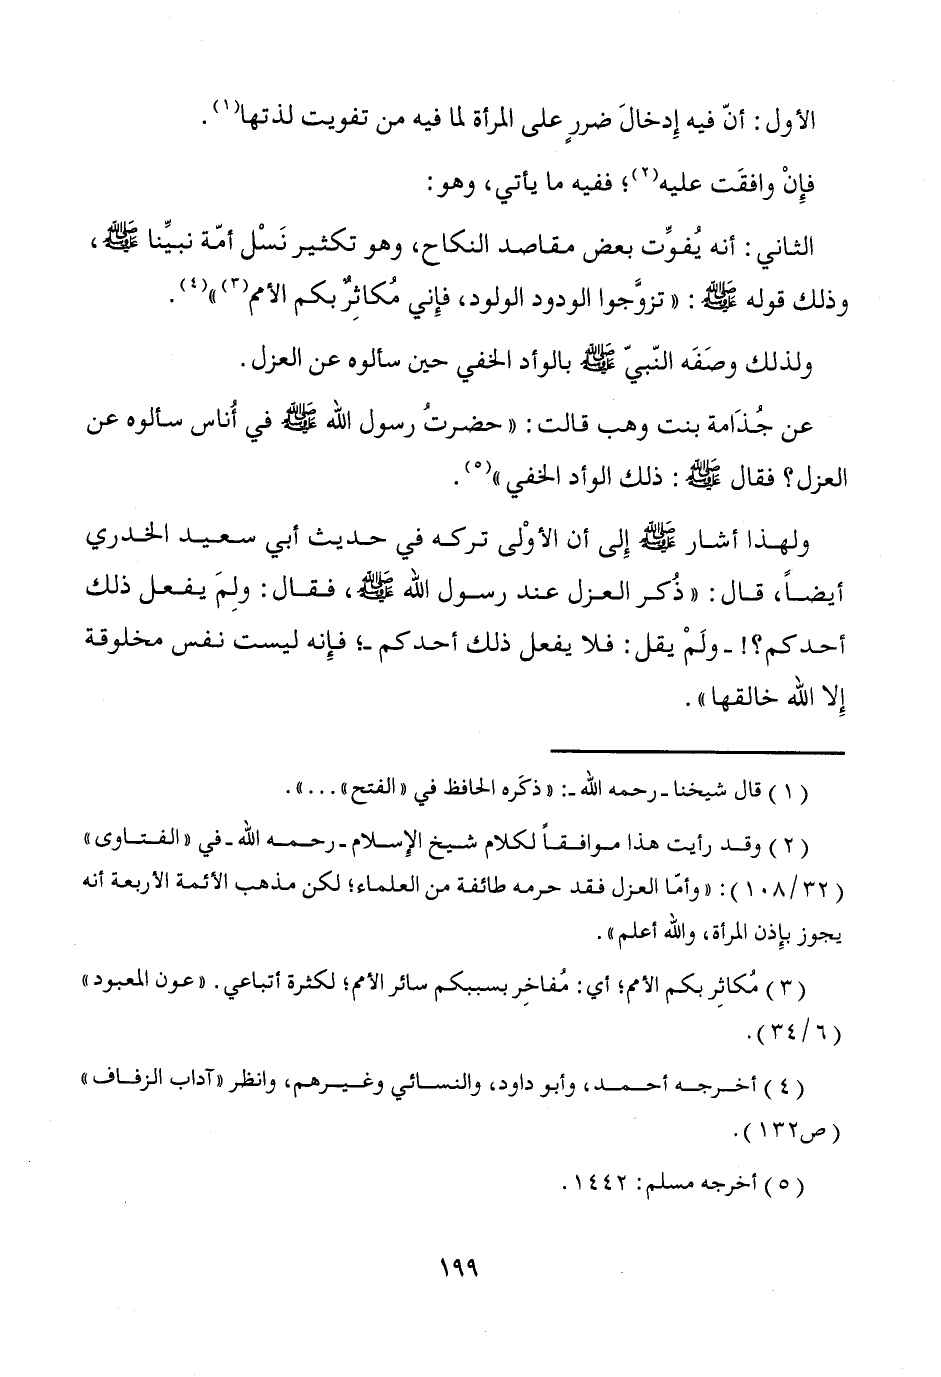 الأول : أنّ فيه إدخالَ ضررٍ على المرأة لما فيه من تفويت لذتها(١) .
فإنْ وافقَت عليه(٢)؛ ففيه ما يأتي، وهو :
الثاني : أنه يُفوِّت بعض مقاصد النكاح، وهو تكثير نَسْل أمّة نبيِّنا ﷺ،
وذلك قوله ﷺ : « تزوَّجوا الودود الولود، فإني مُكاثِرٌ بكم الأمم(٣)»(٤) .
ولذلك وصَفَه النّبيّ ﷺ بالوأد الخفي حين سألوه عن العزل .
عن جُذَامة بنت وهب قالت : « حضرتُ رسول الله ﷺ في أُناس سألوه عن
العزل؟ فقال ﷺ : ذلك الوأد الخفي »(٥) .
ولهذا أشار ﷺ إلى أن الأوْلى تركه في حديث أبي سعيد الخدري
أيضاً، قال : « ذُكر العزل عند رسول الله ﷺ، فقال : ولِمَ يفعل ذلك
أحدكم؟! ـ ولَمْ يقل : فلا يفعل ذلك أحدكم ـ؛ فإنه ليست نفس مخلوقة
إلا الله خالقها » .
(١) قال شيخنا ـ رحمه الله ـ : « ذكَره الحافظ في «الفتح» ...» .
(٢) وقد رأيت هذا موافقاً لكلام شيخ الإسلام ـ رحمه الله ـ في «الفتاوى»
(٣٢/١٠٨) : «وأمّا العزل فقد حرمه طائفة من العلماء؛ لكن مذهب الأئمة الأربعة أنه
يجوز بإذن المرأة، والله أعلم» .
(٣) مُكاثِر بكم الأمم؛ أي : مُفاخِر بسببكم سائر الأمم؛ لكثرة أتباعي . «عون المعبود»
(٦/٣٤) .
(٤) أخرجه أحمد، وأبو داود، والنسائي وغيرهم، وانظر «آداب الزفاف»
(ص١٣٢) .
(٥) أخرجه مسلم : ١٤٤٢ .
١٩٩